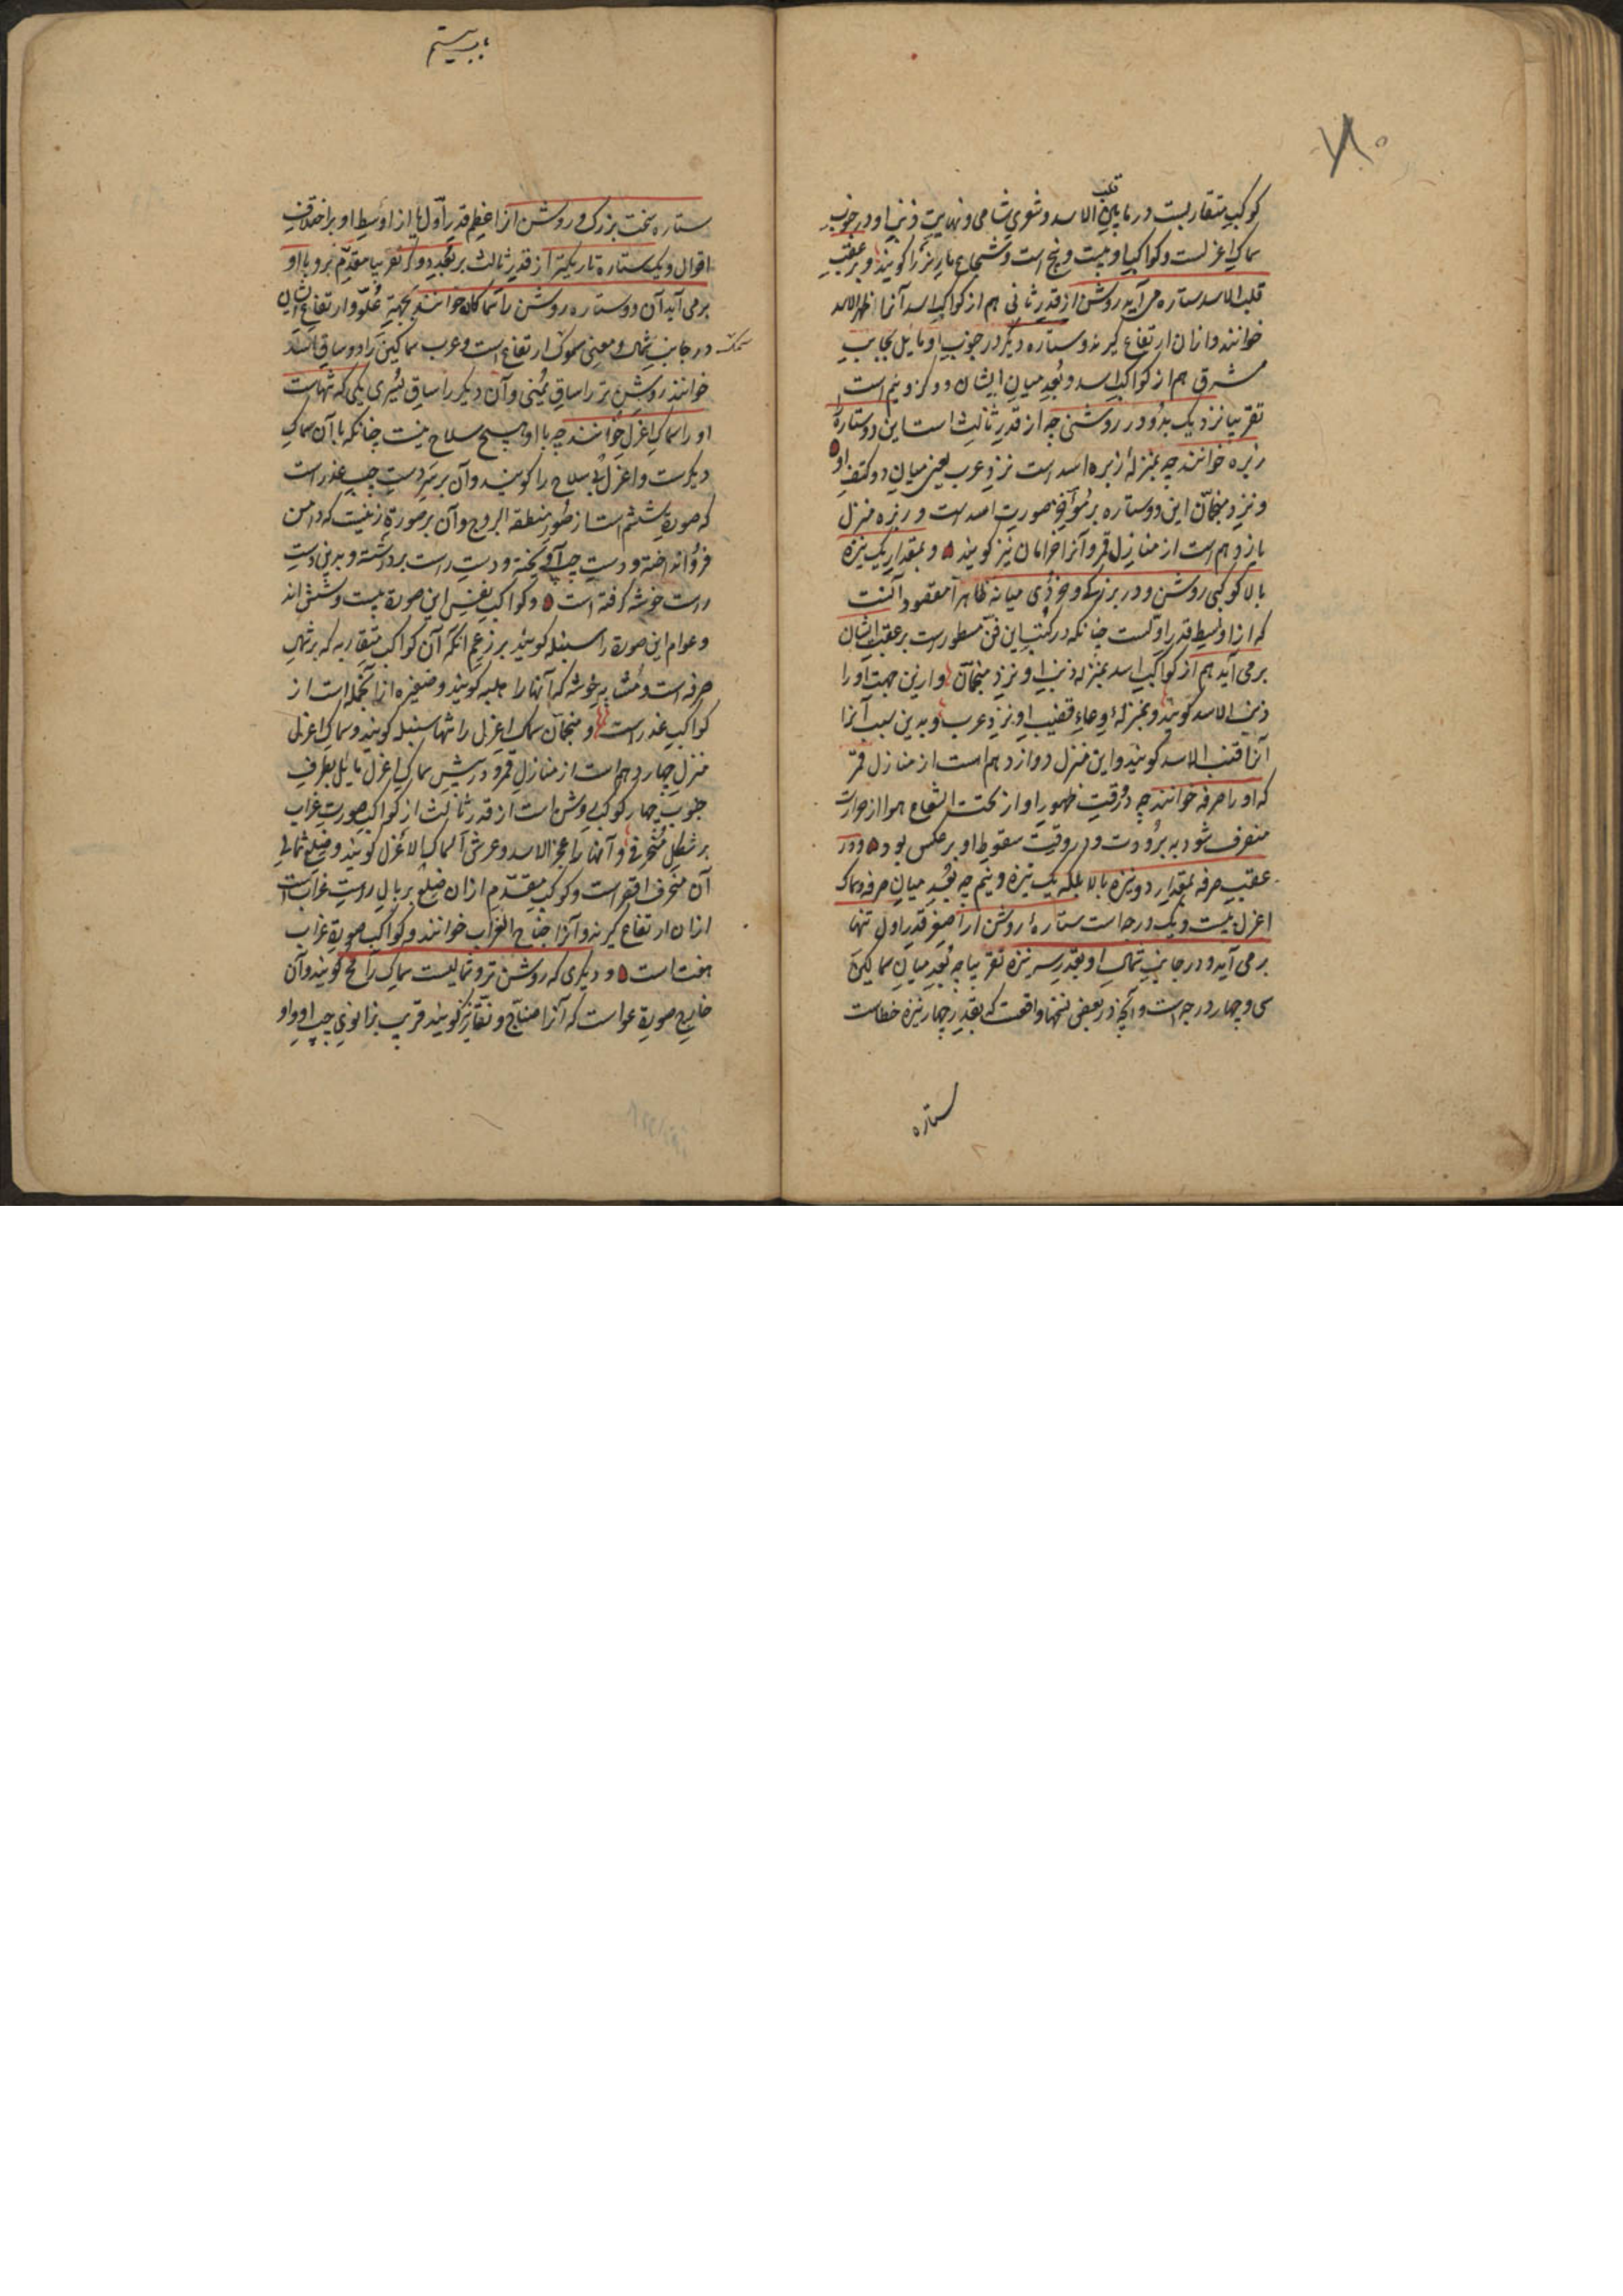 ۷۸
کوکب متقاربست در مابین قلب الاسد و شعری شامی و نهایت ذنب او در جنوب
سماک اعزلست و کواکب او بیست و پنج است و شجاع مار نر را کویند و بر عقب
قلب الاسد ستاره می آید روشن از قدر ثانی هم از کواکب اسد آنرا ظهر الاسد
خوانند و ازان ارتفاع کیرند و ستاره دیکر در جنوب او مایل بجانب
مشرق هم از کواکب اسد و بعد میان ایشان دو کز و نیم است
تقریبا نزدیک بدو در روشنی چه از قدر ثالث است این دو ستاره
زبره خوانند چه بمنزله زبره اسد است نزد عرب یعنی میان دو کتف او
و نزد منجمان این دو ستاره بر مؤخر صورت اسدست و زبره منزل
یازدهم است از منازل قمر و آنرا خراتان نیز کویند و بمقدار یک نیزه
بالا کوکبی روشن و در بزرکی و خردی میانه ظاهرا مقصود آنست
که از اوسط قدر اولست چنانکه در کتب این فن مسطورست بر عقب ایشان
برمی آید هم از کواکب اسد بمنزله ذنب او نزد منجمان و ازین جهت او را
ذنب الاسد کویند و بمنزله وعاء قضیب او نزد عرب و بدین سبب آنرا
آنرا قنب الاسد کویند و این منزل دوازدهم است از منازل قمر
که او را صرفه خوانند چه در وقت ظهور او از تحت الشعاع هوا از حرارت
منصرف شود به برودت و در وقت سقوط او بر عکس بود و در
عقب صرفه بمقدار دو نیزه بالا بلکه یک نیزه و نیم چه بعد میان صرفه و سماک
اعزل بیست و یک درجه است ستاره روشن از اصغر قدر اول تنها
برمی آید و در جانب شمال او بقدر سه نیزه تقریبا چه بعد میان سماکین
سی و چهار درجه است و آنچه در بعضی نسخها واقعست که بقدر چهار نیزه خطاست
ستاره
باب بیستم
ستاره سخت بزرک و روشن از اعظم قدر اول یا از اوسط او بر اختلاف
اقوال و یک ستاره تاریکتر از قدر ثالث بر بعد دو کز تقریبا مقدم برو با او
برمی آید آن دو ستاره روشن را سماکان خوانند بجهة علو و ارتفاع ایشان
در جانب شمال و معنی سموک ارتفاع است و عرب سماکین را دو ساق اسد
خوانند روشن تر را ساق یمنی و آن دیکر را ساق یسری یکی که تنهاست
او را سماک اعزل خوانند چه با او هیچ سلاح نیست چنانکه با آن سماک
دیکرست و اعزل بی سلاح را کویند و آن بر سر دست چپ عذراست
که صورة ششم است از صور منطقة البروج و آن بر صورة زنیست که دامن
فرو انداخته و دست چپ آویخته و دست راست برداشته و بدین دست
راست خوشه کرفته است و کواکب نفس این صورة بیست و شش اند
و عوام این صورة را سنبله کویند بر زعم آنکه آن کواکب متقاربه که بر شمال
صرفه است و مشابه خوشه که آنها را هلبه کویند و ضفیره از آنجمله است از
کواکب عذراست و منجمان سماک اعزل را تنها سنبله کویند و سماک اعزل
منزل چهاردهم است از منازل قمر و در پیش سماک اعزل مایل بطرف
جنوب چهار کوکب روشن است از قدر ثالث از کواکب صورت غراب
بر شکل منحرف و آنها را عجز الاسد و عرش السماک الاعزل کویند و ضلع شمالی
آن منحرف اقصر است و کوکب مقدم ازان ضلع بر بال راست غرابست
ازان ارتفاع کیرند و آنرا جناح الغراب خوانند و کواکب صورة غراب
هفت است و دیکری که روشن تر و شمالیست سماک رامح کویند و آن
خارج صورة عواست که آنرا صیاح و نقار نیز کویند قریب بزانوی چپ او و او